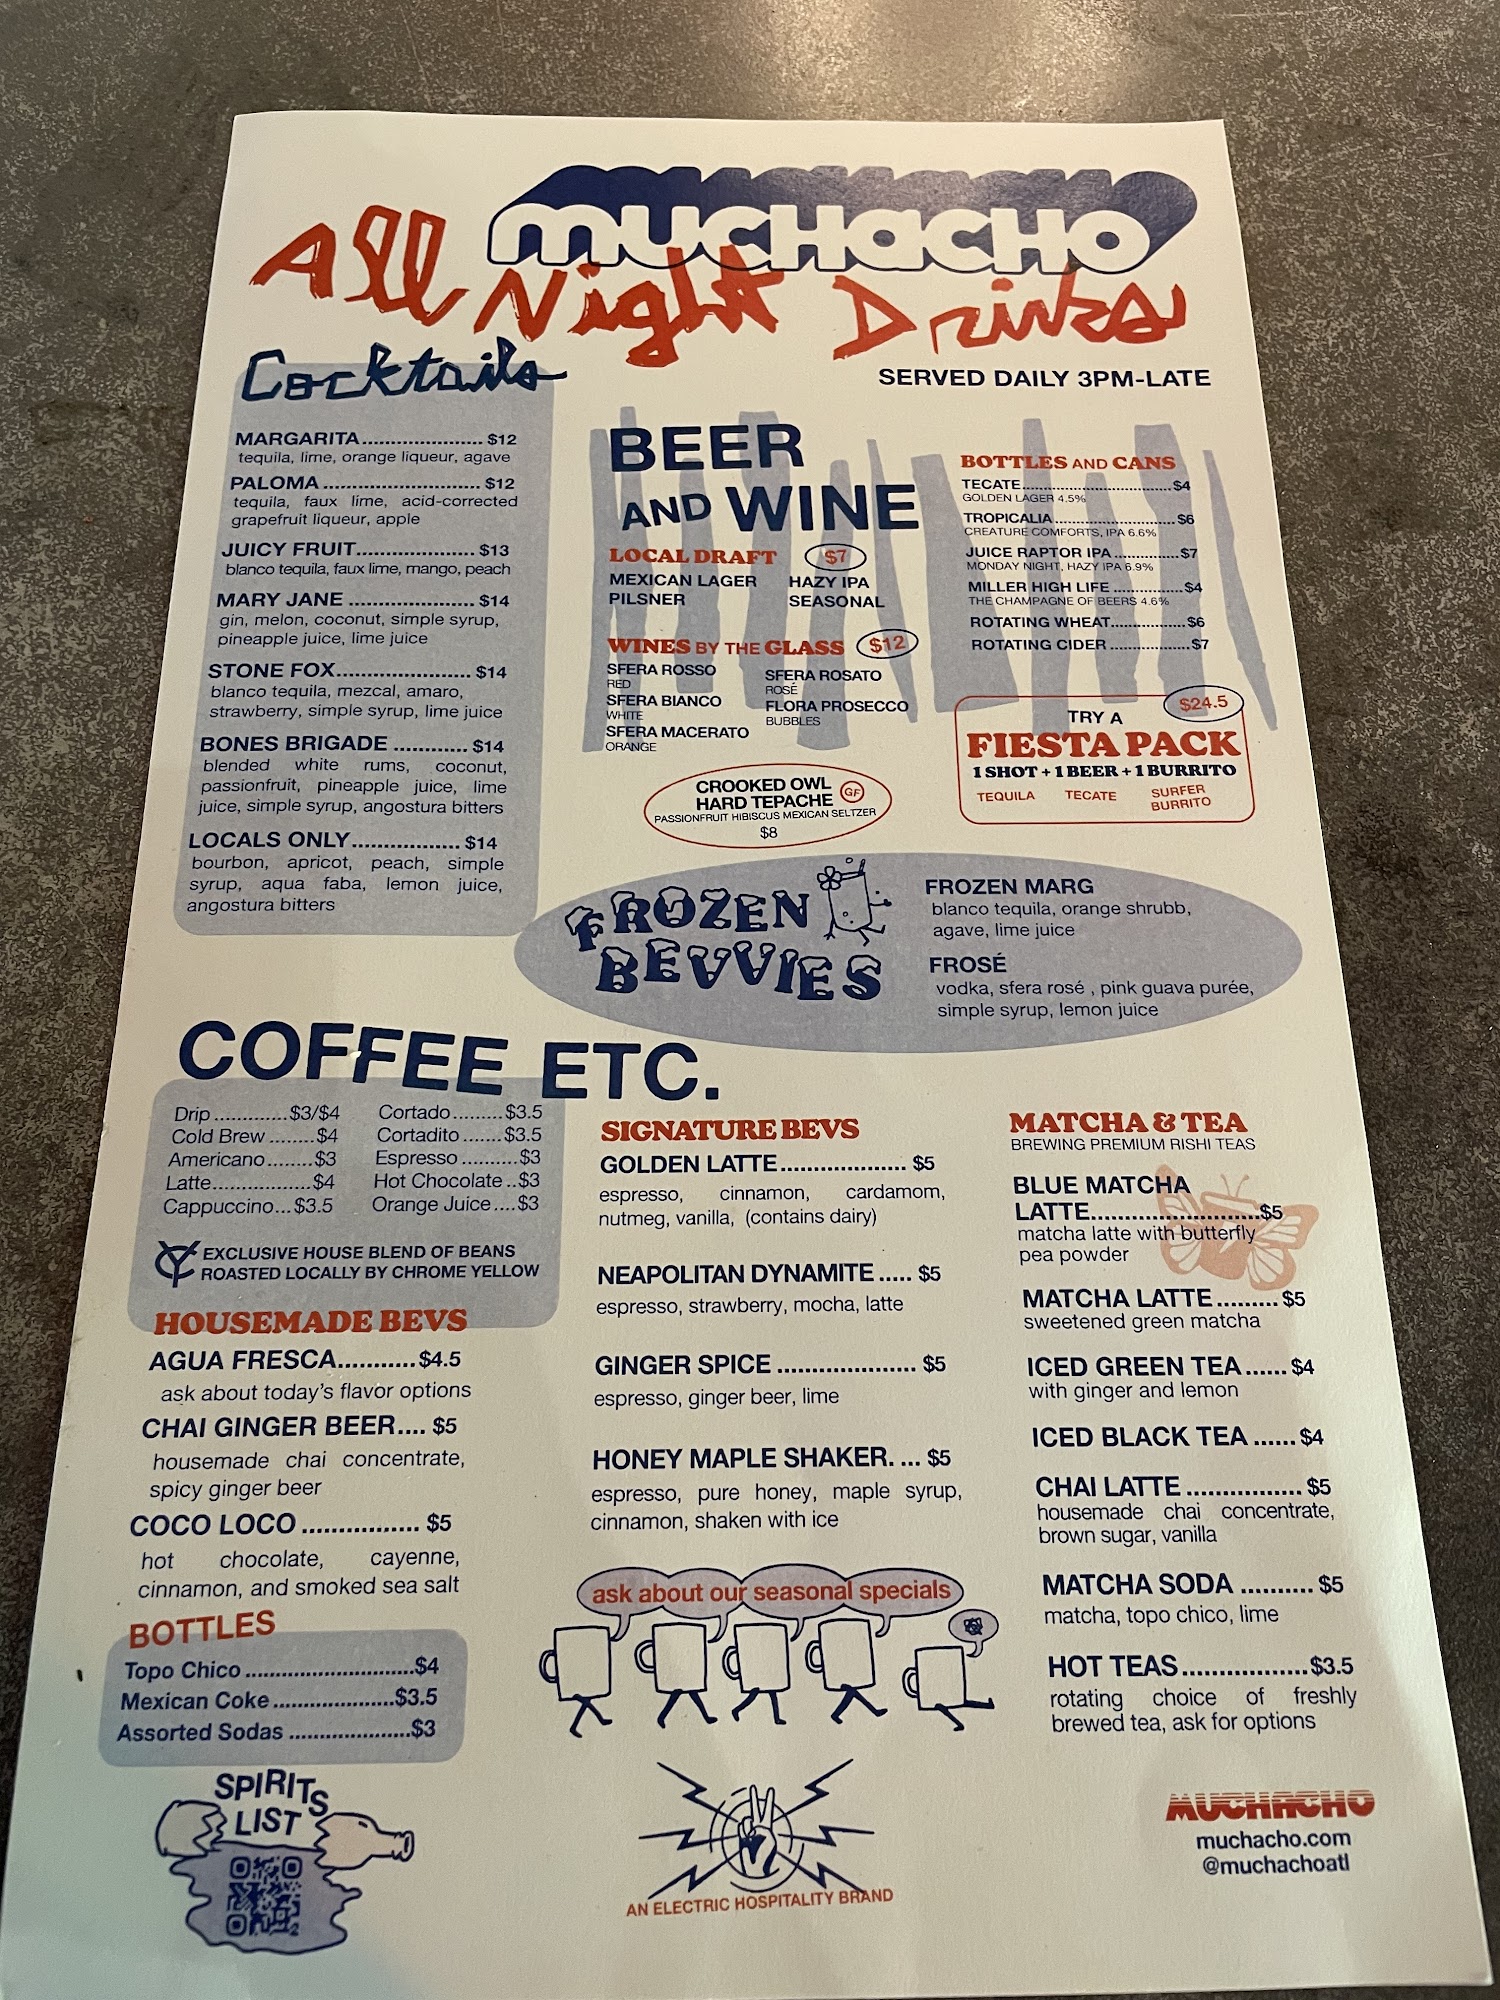 muchacho
All Night Drinks
SERVED DAILY 3PM-LATE
Cocktails
MARGARITA.......................$12
tequila, lime, orange liqueur, agave
PALOMA........................$12
tequila, faux lime, acid-corrected
grapefruit liqueur, apple
JUICY FRUIT......................$13
blanco tequila, faux lime, mango, peach
MARY JANE......................$14
gin, melon, coconut, simple syrup,
pineapple juice, lime juice
STONE FOX........................$14
blanco tequila, mezcal, amaro,
strawberry, simple syrup, lime juice
BONES BRIGADE............$14
blended white rums, coconut,
passionfruit, pineapple juice, lime
juice, simple syrup, angostura bitters
LOCALS ONLY..................$14
bourbon, apricot, peach, simple
syrup, aqua faba, lemon juice,
angostura bitters
BEER
AND WINE
LOCAL DRAFT $7
MEXICAN LAGER HAZY IPA
PILSNER SEASONAL
WINES BY THE GLASS $12
SFERA ROSSO
RED
SFERA BIANCO
WHITE
SFERA MACERATO
ORANGE
SFERA ROSATO
ROSÉ
FLORA PROSECCO
BUBBLES
CROOKED OWL
HARD TEPACHE GF
PASSIONFRUIT HIBISCUS MEXICAN SELTZER
$8
BOTTLES AND CANS
TECATE..............................$4
GOLDEN LAGER 4.5%
TROPICALIA........................$6
CREATURE COMFORTS, IPA 6.6%
JUICE RAPTOR IPA..............$7
MONDAY NIGHT, HAZY IPA 6.9%
MILLER HIGH LIFE...............$4
THE CHAMPAGNE OF BEERS 4.6%
ROTATING WHEAT................$6
ROTATING CIDER..................$7
$24.5
TRY A
FIESTA PACK
1 SHOT + 1 BEER + 1 BURRITO
TEQUILA TECATE SURFER
BURRITO
FROZEN
BEVVIES
FROZEN MARG
blanco tequila, orange shrubb,
agave, lime juice
FROSÉ
vodka, sfera rosé , pink guava purée,
simple syrup, lemon juice
COFFEE ETC.
Drip.............$3/$4
Cold Brew........$4
Americano........$3
Latte..................$4
Cappuccino...$3.5
Cortado.........$3.5
Cortadito.......$3.5
Espresso..........$3
Hot Chocolate..$3
Orange Juice....$3
CY EXCLUSIVE HOUSE BLEND OF BEANS
ROASTED LOCALLY BY CHROME YELLOW
HOUSEMADE BEVS
AGUA FRESCA...........$4.5
ask about today's flavor options
CHAI GINGER BEER.... $5
housemade chai concentrate,
spicy ginger beer
COCO LOCO................$5
hot chocolate, cayenne,
cinnamon, and smoked sea salt
BOTTLES
Topo Chico............................$4
Mexican Coke.....................$3.5
Assorted Sodas.....................$3
SPIRITS
LIST
SIGNATURE BEVS
GOLDEN LATTE.................... $5
espresso, cinnamon, cardamom,
nutmeg, vanilla, (contains dairy)
NEAPOLITAN DYNAMITE..... $5
espresso, strawberry, mocha, latte
GINGER SPICE...................... $5
espresso, ginger beer, lime
HONEY MAPLE SHAKER. ... $5
espresso, pure honey, maple syrup,
cinnamon, shaken with ice
ask about our seasonal specials
AN ELECTRIC HOSPITALITY BRAND
MATCHA & TEA
BREWING PREMIUM RISHI TEAS
BLUE MATCHA
LATTE.........................$5
matcha latte with butterfly
pea powder
MATCHA LATTE.........$5
sweetened green matcha
ICED GREEN TEA......$4
with ginger and lemon
ICED BLACK TEA......$4
CHAI LATTE.................$5
housemade chai concentrate,
brown sugar, vanilla
MATCHA SODA..........$5
matcha, topo chico, lime
HOT TEAS..................$3.5
rotating choice of freshly
brewed tea, ask for options
MUCHACHO
muchacho.com
@muchachoatl